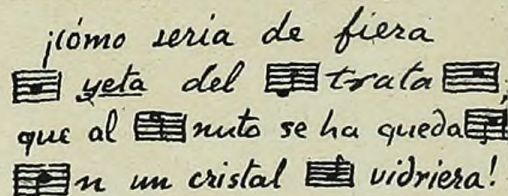 ¡cómo seria de fiera
yeta del trata
que al nuto se ha queda
n un cristal vidriera!